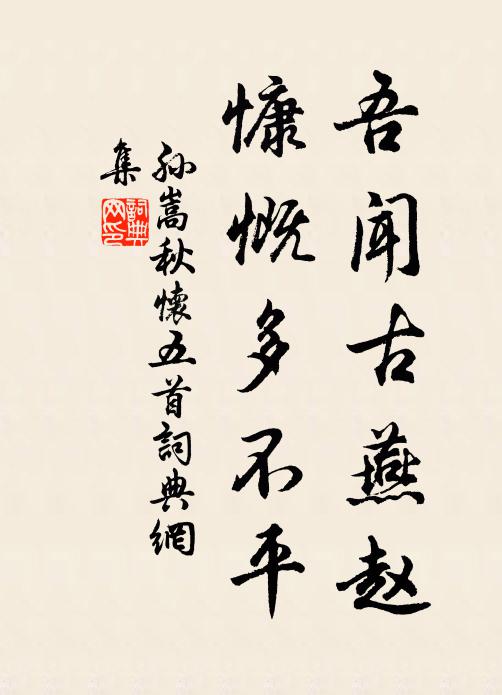 吾闻古燕赵
慷慨多不平
孙嵩秋懷五首詞典網
集
詞典
网印